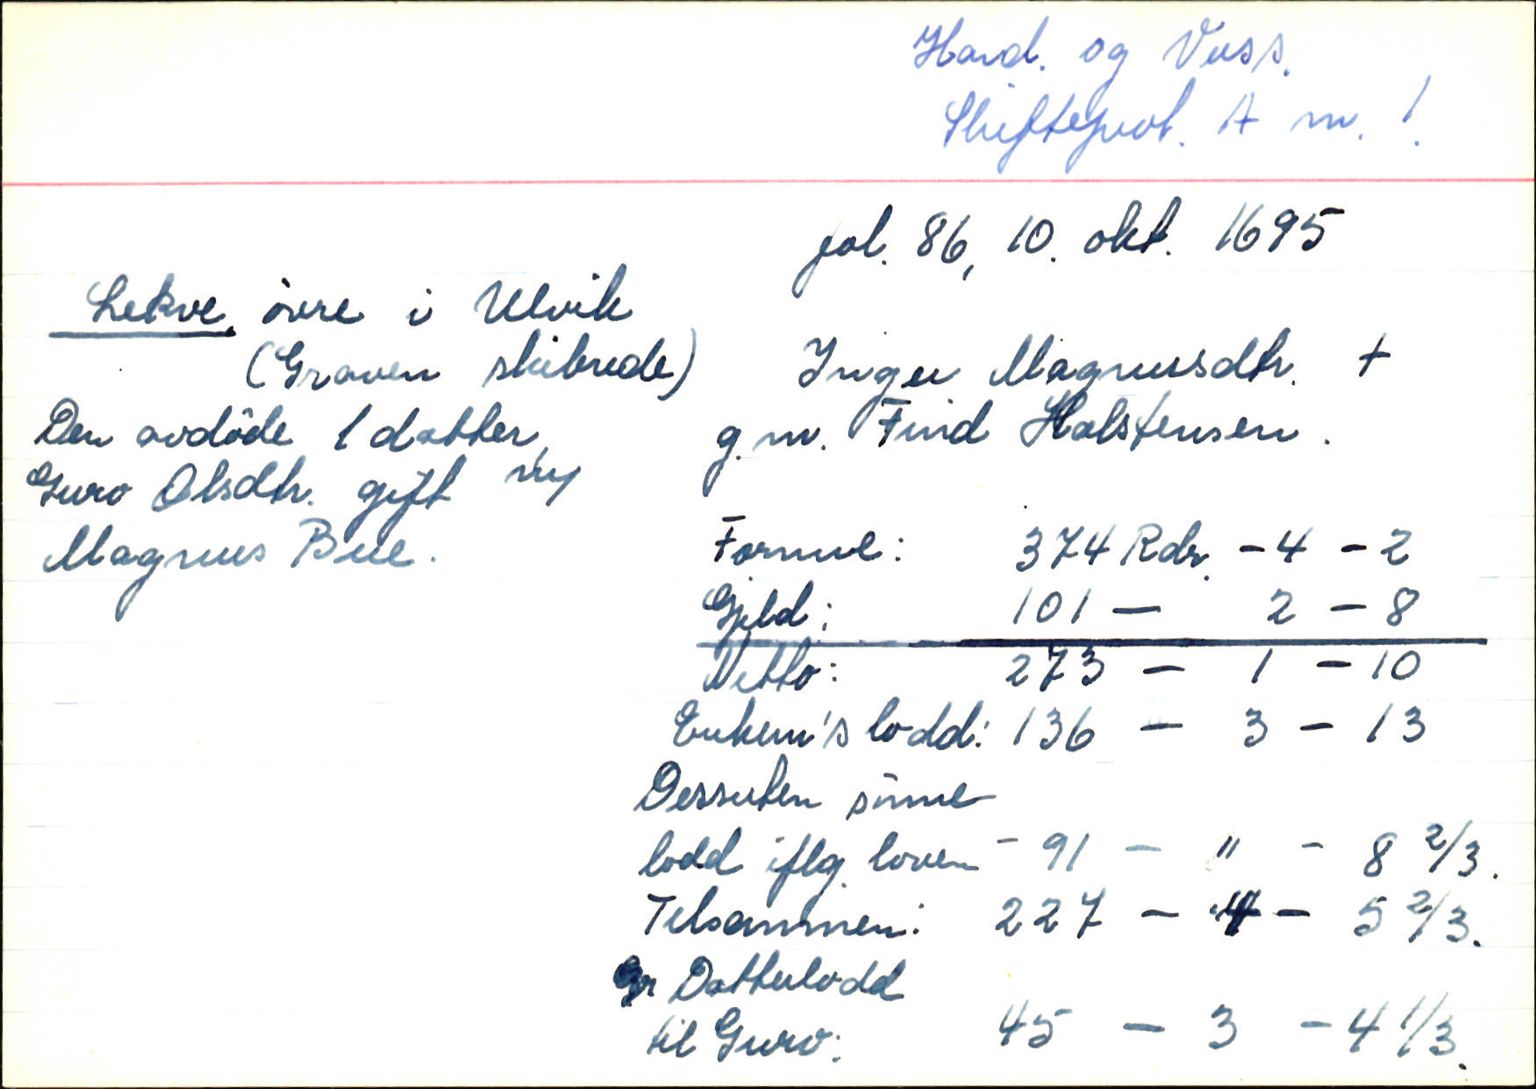 Hard. og Voss.
Skifteprot. A nr. 1.
fol. 86, 10. okt. 1695
Lekve, övre i Ulvik
(Graven skibrede)
Den avdöde 1 datter,
Guro Olsdtr. gift m/
Magnus Bue.
Inger Magnusdtr. +
g.m. Find Halstensen.
Formue: 374 Rdr. - 4 - 2
Gjeld: 101 — 2 - 8
Netto: 273 — 1 - 10
Enkem's lodd: 136 — 3 - 13
Dessuten sönne
lodd iflg. loven - 91 — " - 8 2/3.
Tilsammen: 227 — 4 - 5 2/3.
Datterlodd
til Guro: 45 — 3 - 4 1/3.